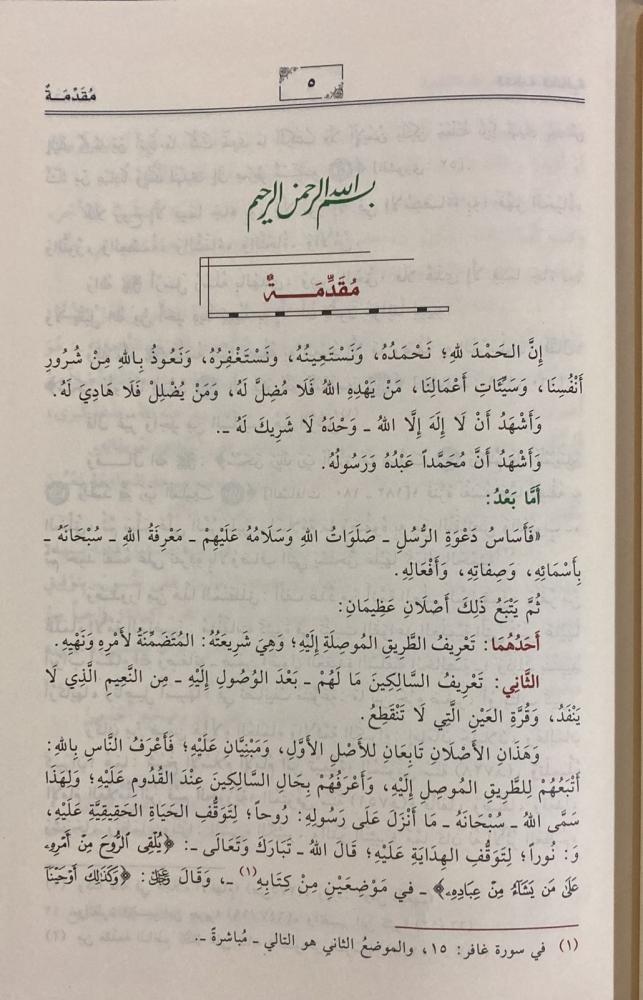 مُقَدِّمَـةٌ
٥
بسم الله الرحمن الرحيم
مُقَدِّمَـــــةٌ
إِنَّ الحَمْدَ لِلهِ؛ نَحْمَدُهُ، وَنَسْتَعِينُهُ، وَنَسْتَغْفِرُهُ، وَنَعُوذُ بِاللهِ مِنْ شُرُورِ
أَنْفُسِنَا، وَسَيِّئَاتِ أَعْمَالِنَا، مَنْ يَهْدِهِ اللهُ فَلَا مُضِلَّ لَهُ، وَمَنْ يُضْلِلْ فَلَا هَادِيَ لَهُ.
وَأَشْهَدُ أَنْ لَا إِلَهَ إِلَّا اللهُ ـ وَحْدَهُ لَا شَرِيكَ لَهُ ـ.
وَأَشْهَدُ أَنَّ مُحَمَّداً عَبْدُهُ وَرَسُولُهُ.
أَمَّا بَعْدُ:
«فَأَسَاسُ دَعْوَةِ الرُّسُلِ ـ صَلَوَاتُ اللهِ وَسَلَامُهُ عَلَيْهِمْ ـ مَعْرِفَةُ اللهِ ـ سُبْحَانَهُ ـ
بِأَسْمَائِهِ، وَصِفَاتِهِ، وَأَفْعَالِهِ.
ثُمَّ يَتْبَعُ ذَلِكَ أَصْلَانِ عَظِيمَانِ:
أَحَدُهُمَا: تَعْرِيفُ الطَّرِيقِ المُوصِلَةِ إِلَيْهِ؛ وَهِيَ شَرِيعَتُهُ: المُتَضَمِّنَةُ لأَمْرِهِ وَنَهْيِهِ.
الثَّانِي: تَعْرِيفُ السَّالِكِينَ مَا لَهُمْ ـ بَعْدَ الوُصُولِ إِلَيْهِ ـ مِنَ النَّعِيمِ الَّذِي لَا
يَنْفَدُ، وَقُرَّةِ العَيْنِ الَّتِي لَا تَنْقَطِعُ.
وَهَذَانِ الأَصْلَانِ تَابِعَانِ للأَصْلِ الأَوَّلِ، وَمَبْنِيَّانِ عَلَيْهِ؛ فَأَعْرَفُ النَّاسِ بِاللهِ:
أَتْبَعُهُمْ لِلطَّرِيقِ المُوصِلِ إِلَيْهِ، وَأَعْرَفُهُمْ بِحَالِ السَّالِكِينَ عِنْدَ القُدُومِ عَلَيْهِ؛ وَلِهَذَا
سَمَّى اللهُ ـ سُبْحَانَهُ ـ مَا أَنْزَلَ عَلَى رَسُولِهِ: رُوحاً؛ لِتَوَقُّفِ الحَيَاةِ الحَقِيقِيَّةِ عَلَيْهِ،
وَ: نُوراً؛ لِتَوَقُّفِ الهِدَايَةِ عَلَيْهِ؛ قَالَ اللهُ ـ تَبَارَكَ وَتَعَالَى ـ: ﴿يُلْقِى ٱلرُّوحَ مِنْ أَمْرِهِۦ
عَلَىٰ مَن يَشَآءُ مِنْ عِبَادِهِۦ﴾ ـ في مَوْضِعَيْنِ مِنْ كِتَابِهِ(١) ـ، وَقَالَ ﷻ: ﴿وَكَذَٰلِكَ أَوْحَيْنَآ
(١) في سورة غافر: ١٥، والموضعُ الثاني هو التالي ـ مُباشرةً ـ.